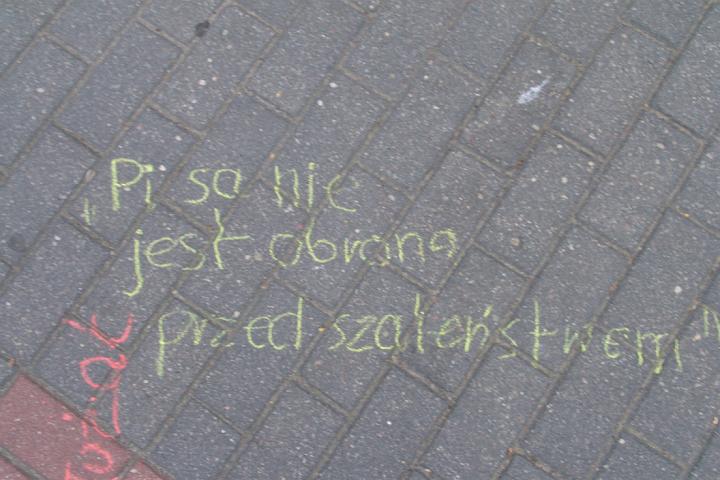 „Pisanie
jest obroną
przed szaleństwem"